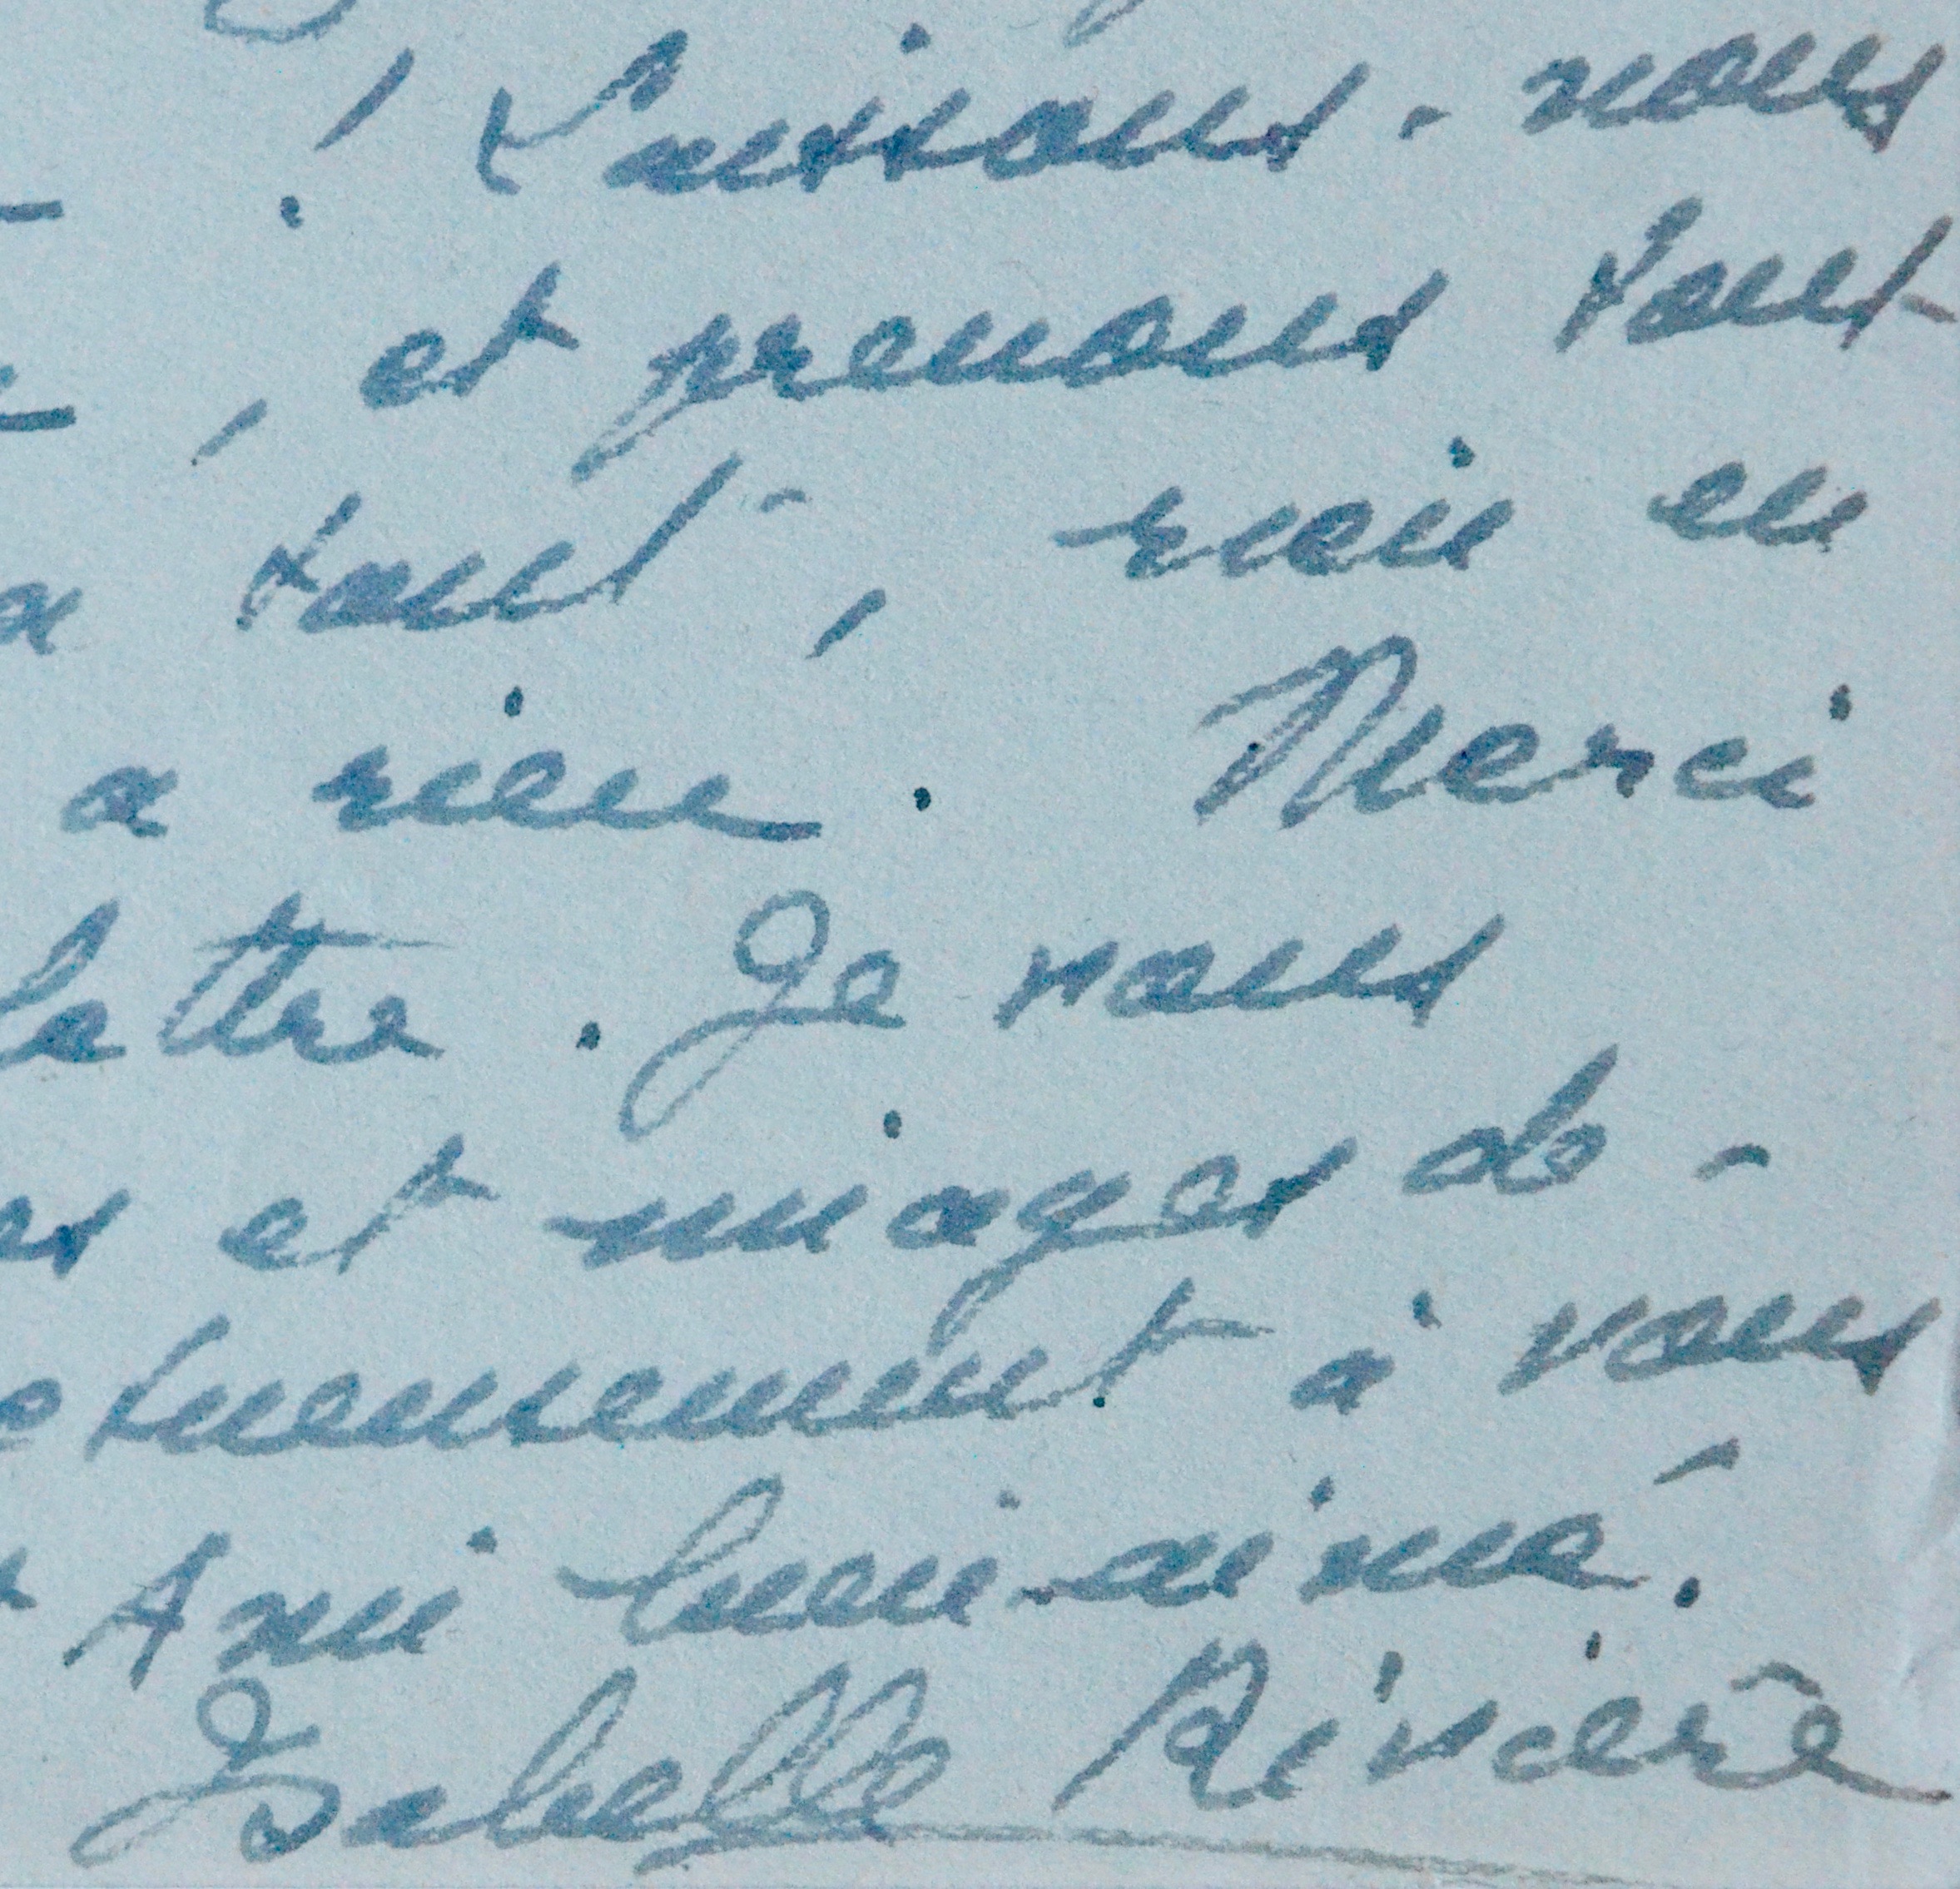 ! Laissons-nous
, et prenons tout
a tout, rien en
a rien. Merci
lettre. Je vous
es et images de-
ctueusement à vous
Ami bien-aimé.
Isabelle Rivière